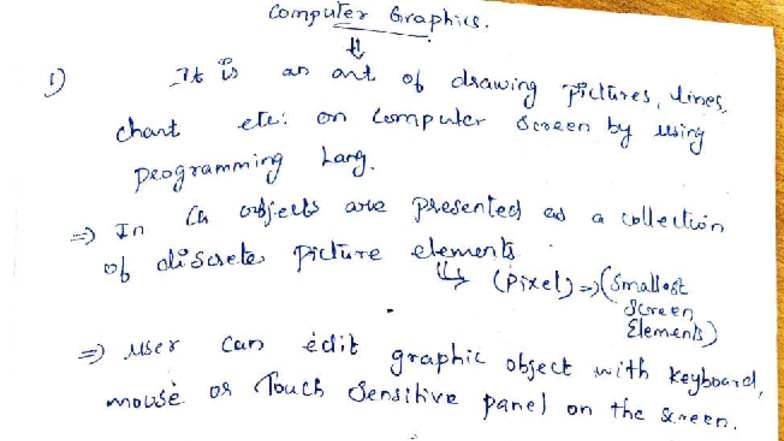 Computer Graphics.
⇓
1) It is an art of drawing pictures, lines,
chart etc: on Computer Screen by using
Programming Lang.
⇒ In CG objects are presented as a collection
of discrete picture elements
↳ (Pixel) ⇒ (Smallest
Screen
Elements)
⇒ User Can edit graphic object with Keyboard,
mouse or Touch Sensitive panel on the screen.